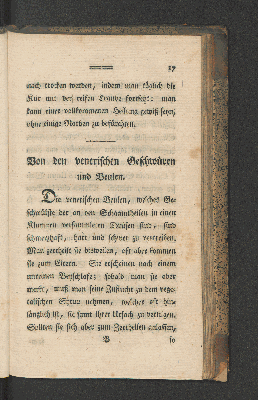 17
nach trocken werden, indem man täglich die
Kur mit der reifen Traube fortsetzt: man
kann einer vollkommenen Heilung gewiß seyn,
ohne einige Narben zu befürchten.
Von den venerischen Geschwüren
und Beulen.
Die venerischen Beulen, welches Ge-
schwülste der an den Schaamtheilen in einer
Klumpen versammleten Drüsen sind, sind
schmerzhaft, hart und schwer zu vertreiben.
Man zertheilt sie bisweilen, oft aber kommen
sie zum Eitern. Sie erscheinen nach einem
unreinen Beyschlafe; sobald man sie aber
merkt, muß man seine Zuflucht zu dem vege-
tabilischen Syrup nehmen, welches oft hin-
länglich ist, sie samt ihrer Ursach zu vertilgen.
Sollten sie sich aber zum Zertheilen anlassen,
B so